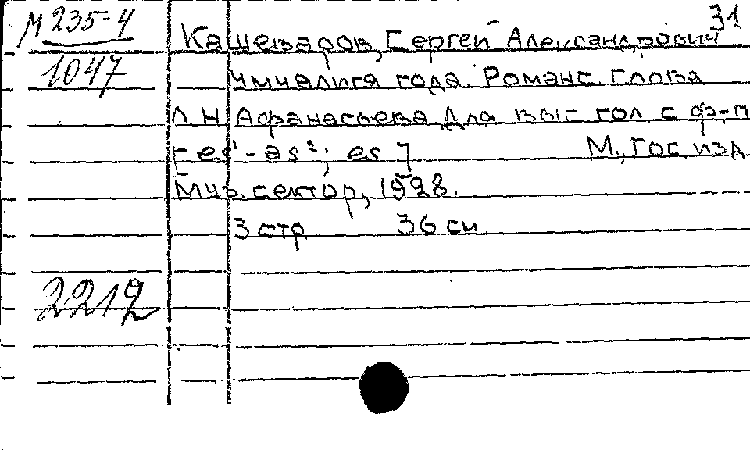 31
М 235-4
Кашеваров, Сергей Александрович
1047
Умчалися года. Романс. Слова
Л. Н. Афанасьева Для выс. гол. с ф-п
[es¹-as²; es]
М, Гос. изд.
Муз. сектор, 1928.
3 стр 36 см
2212